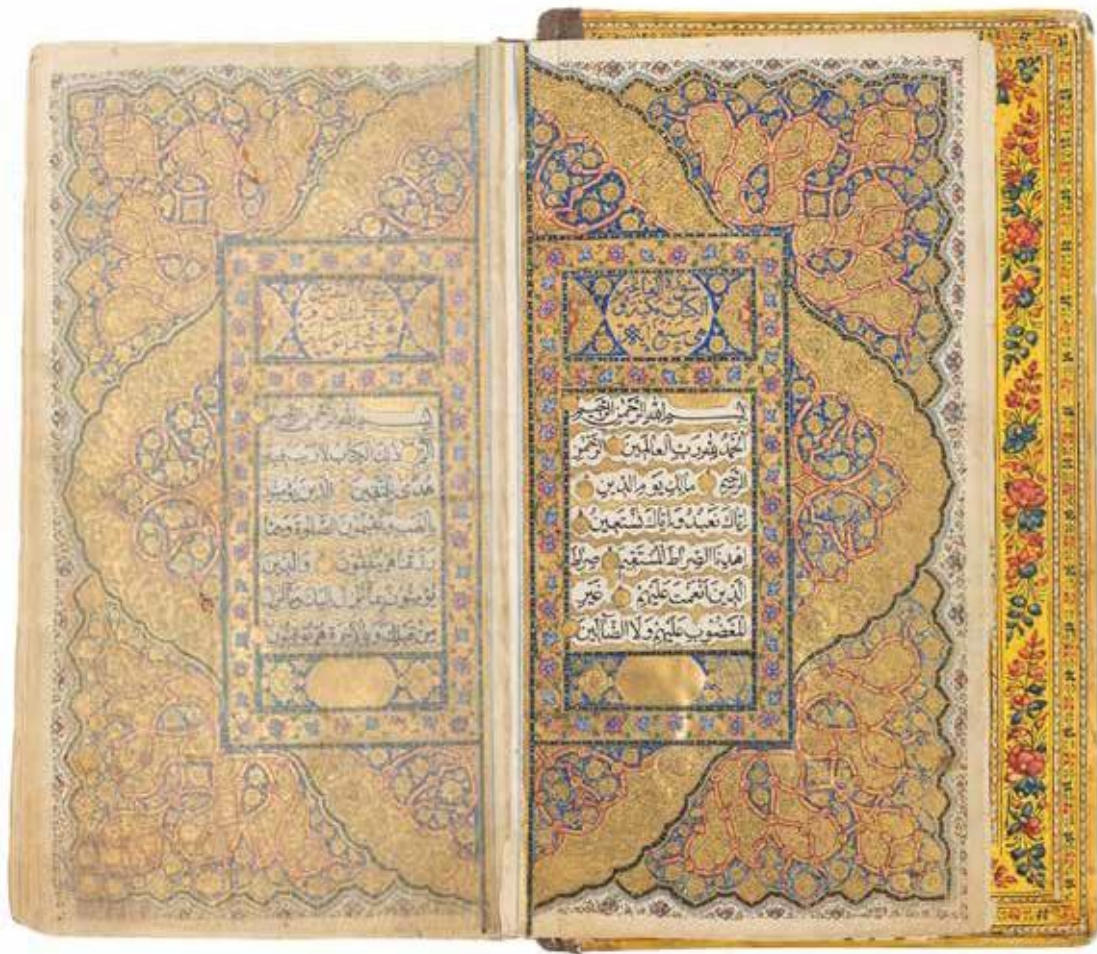 الكتاب مكية
بسم الله الرحمن الرحيم
الحمد لله رب العالمين الرحمن
الرحيم مالك يوم الدين
اياك نعبد واياك نستعين
اهدنا الصراط المستقيم صراط
الذين انعمت عليهم غير
المغضوب عليهم ولا الضالين
بسم الله الرحمن الرحيم
الم ذلك الكتاب لا ريب فيه
هدى للمتقين الذين يؤمنون
بالغيب ويقيمون الصلوة ومما
رزقناهم ينفقون والذين
يؤمنون بما انزل اليك وما انزل
من قبلك وبالاخرة هم يوقنون